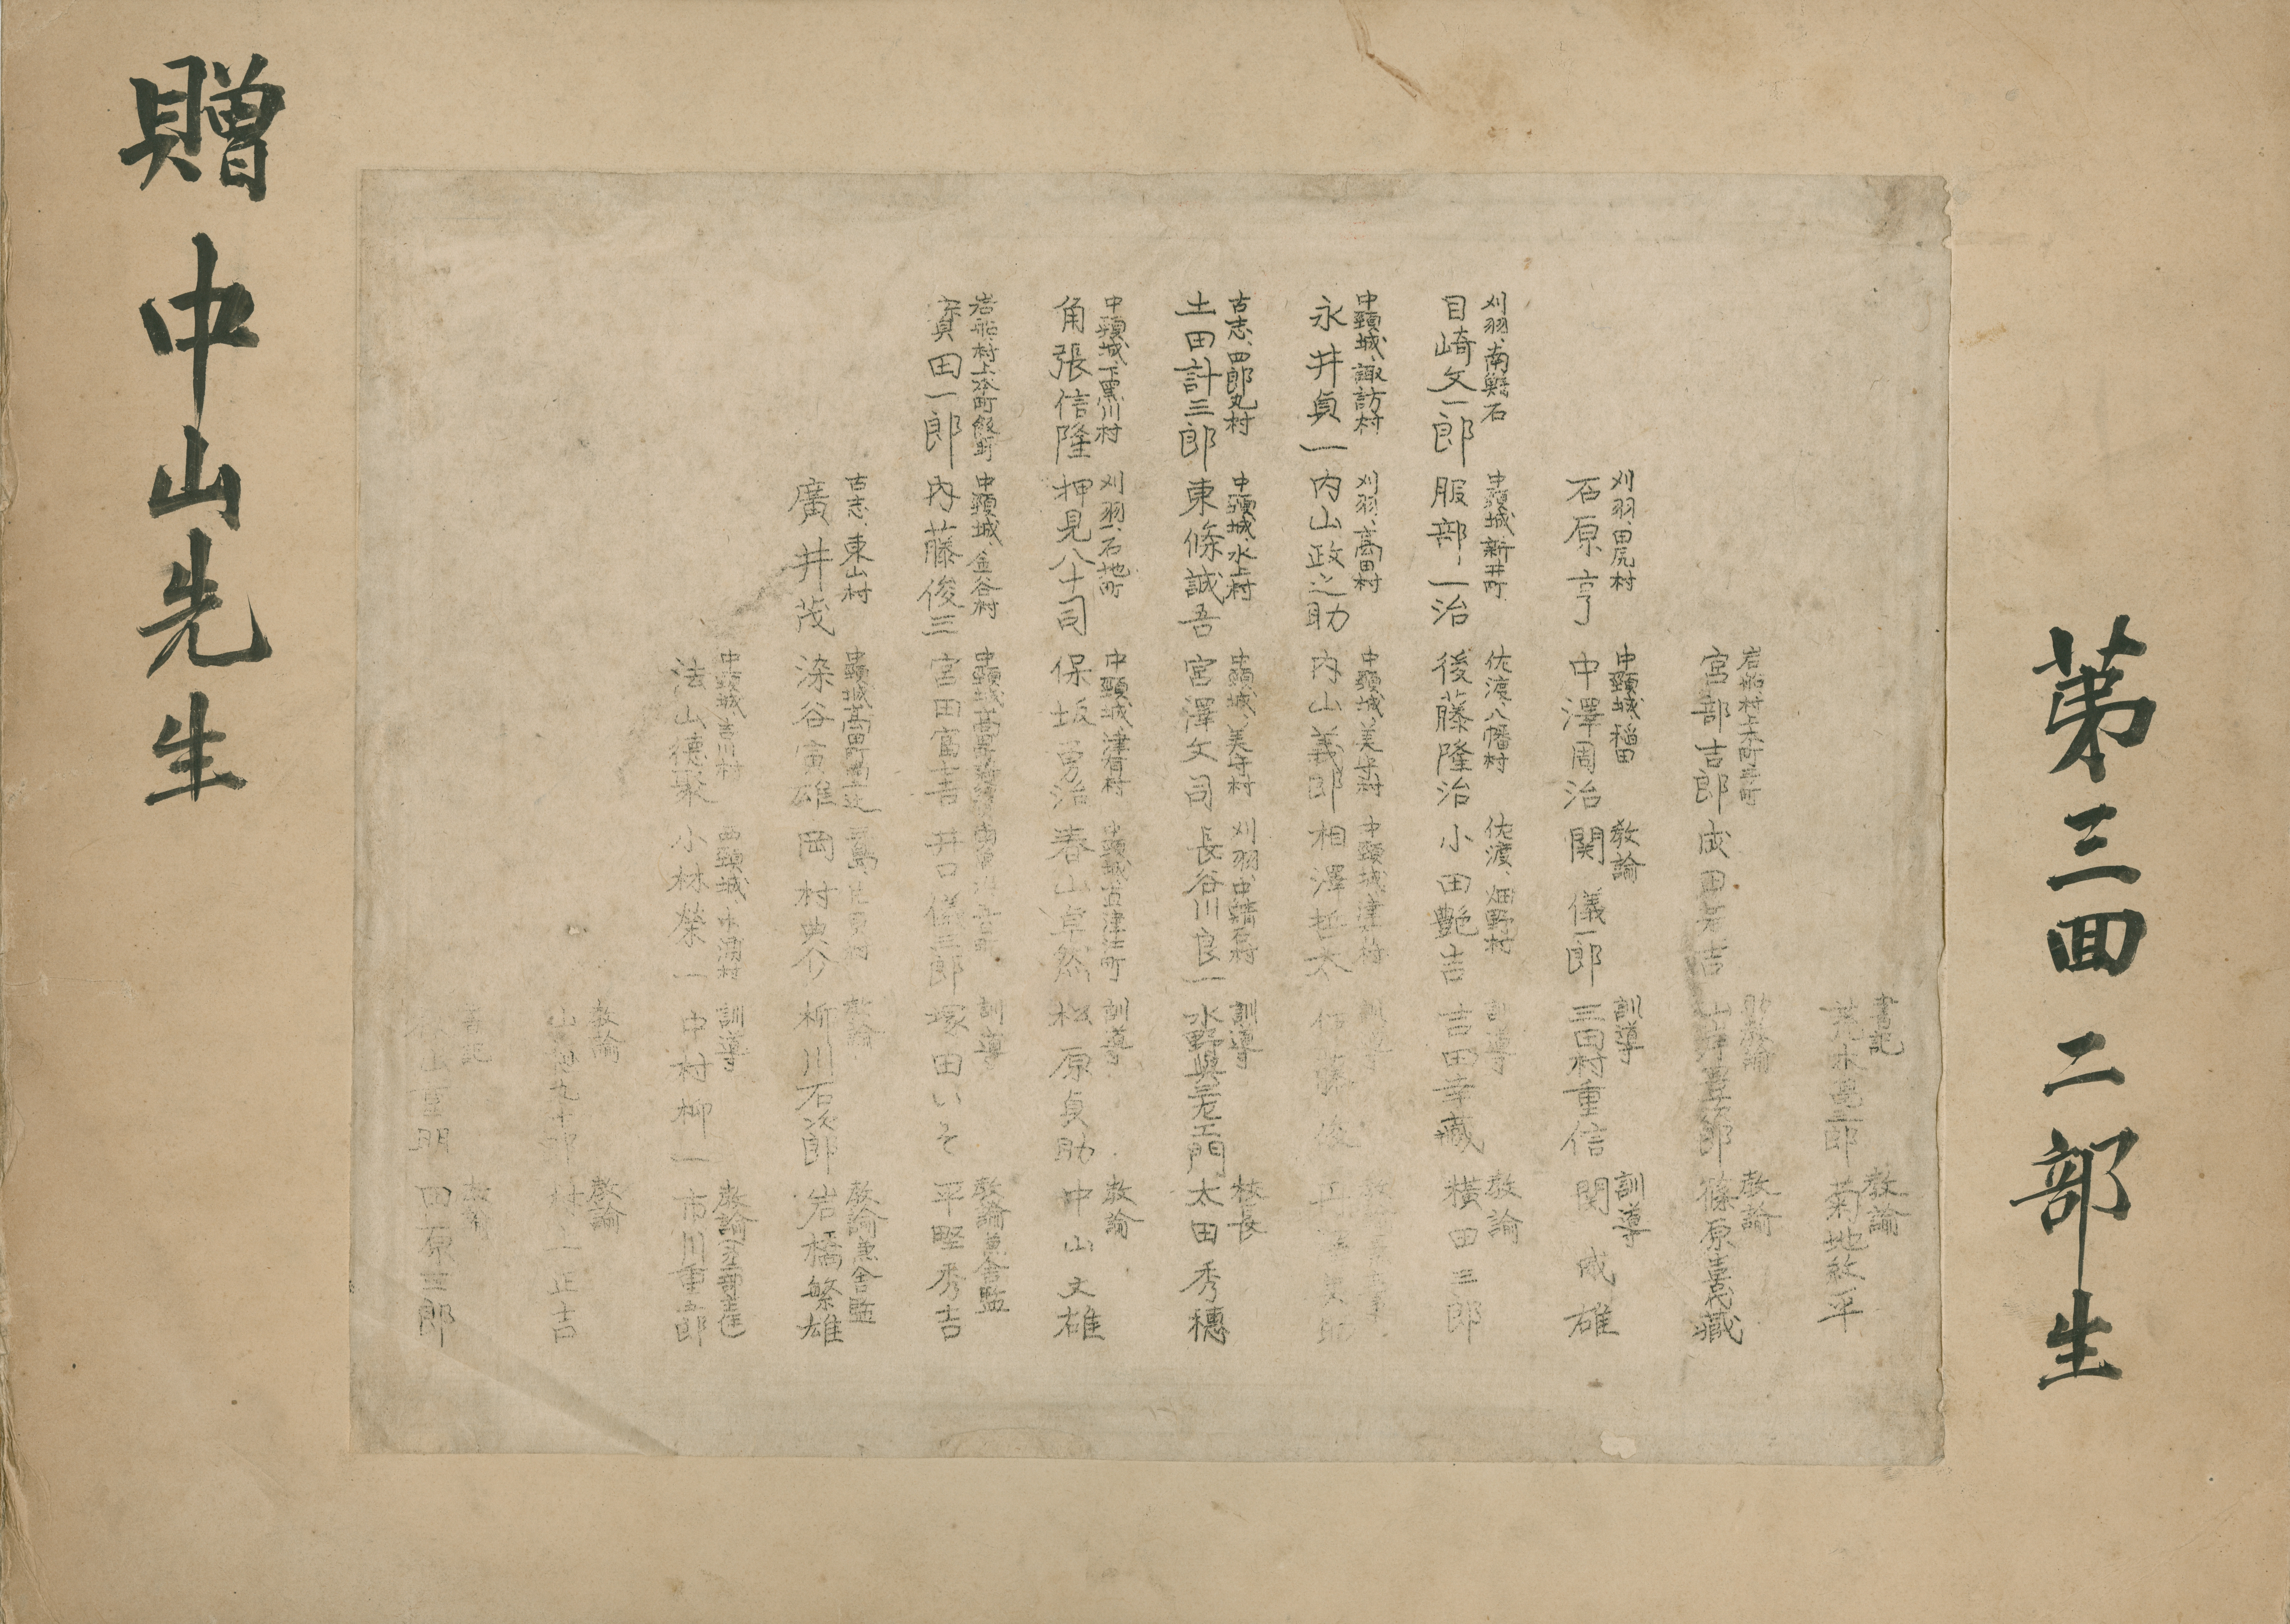 第三回 二部生
刈羽、南鯖石
目崎文一郎
中頸城、諏訪村
永井貞一
古志、四郎丸村
土田計三郎
中頸城、下黒川村
角張信隆
岩船、村上本町飯町
眞田一郎
刈羽、田尻村
石原亨
中頸城、新井町
服部一治
刈羽、高田村
内山政之助
中頸城、水上村
東條誠吾
刈羽、石地町
押見八十司
中頸城、金谷村
内藤俊三
古志、東山村
廣井茂
岩船、村上本町
宮部吉郎
中頸城、稲田
中澤周治
佐渡、八幡村
後藤隆治
中頸城、美守村
内山義郎
中頸城、美守村
宮澤文司
中頸城、津有村
保坂勇治
中頸城、高田
宮田富吉
中頸城、高田町
染谷寅雄
中頸城、吉川村
法山德聚
成田 吉
教諭
関儀一郎
佐渡、畑野村
小田艶吉
中頸城、津 村
相澤哲太
刈羽、中鯖石村
長谷川良一
中頸城、直津江町
春山卓然
井口儀三郎
三島
岡村典介
西頸城、 村
小林榮一
書記
荒木 郎
教諭
山 郎
訓導
三田村重信
訓導
吉田幸藏
訓導
伊藤俊
訓導
水野與三左エ門
訓導
松原貞助
訓導
塚田いそ
教諭
柳川石次郎
訓導
中村柳一
教諭
山 九十郎
書記
山重明
教諭
菊地政平
教諭
篠原喜代藏
訓導
関威雄
教諭
横田三郎
校長
太田秀穗
教諭
中山文雄
教諭兼舎監
平野秀吉
教諭兼舎監
岩橋繁雄
教諭
市川重郎
教諭
村上正吉
教諭
田原三郎
贈 中山先生